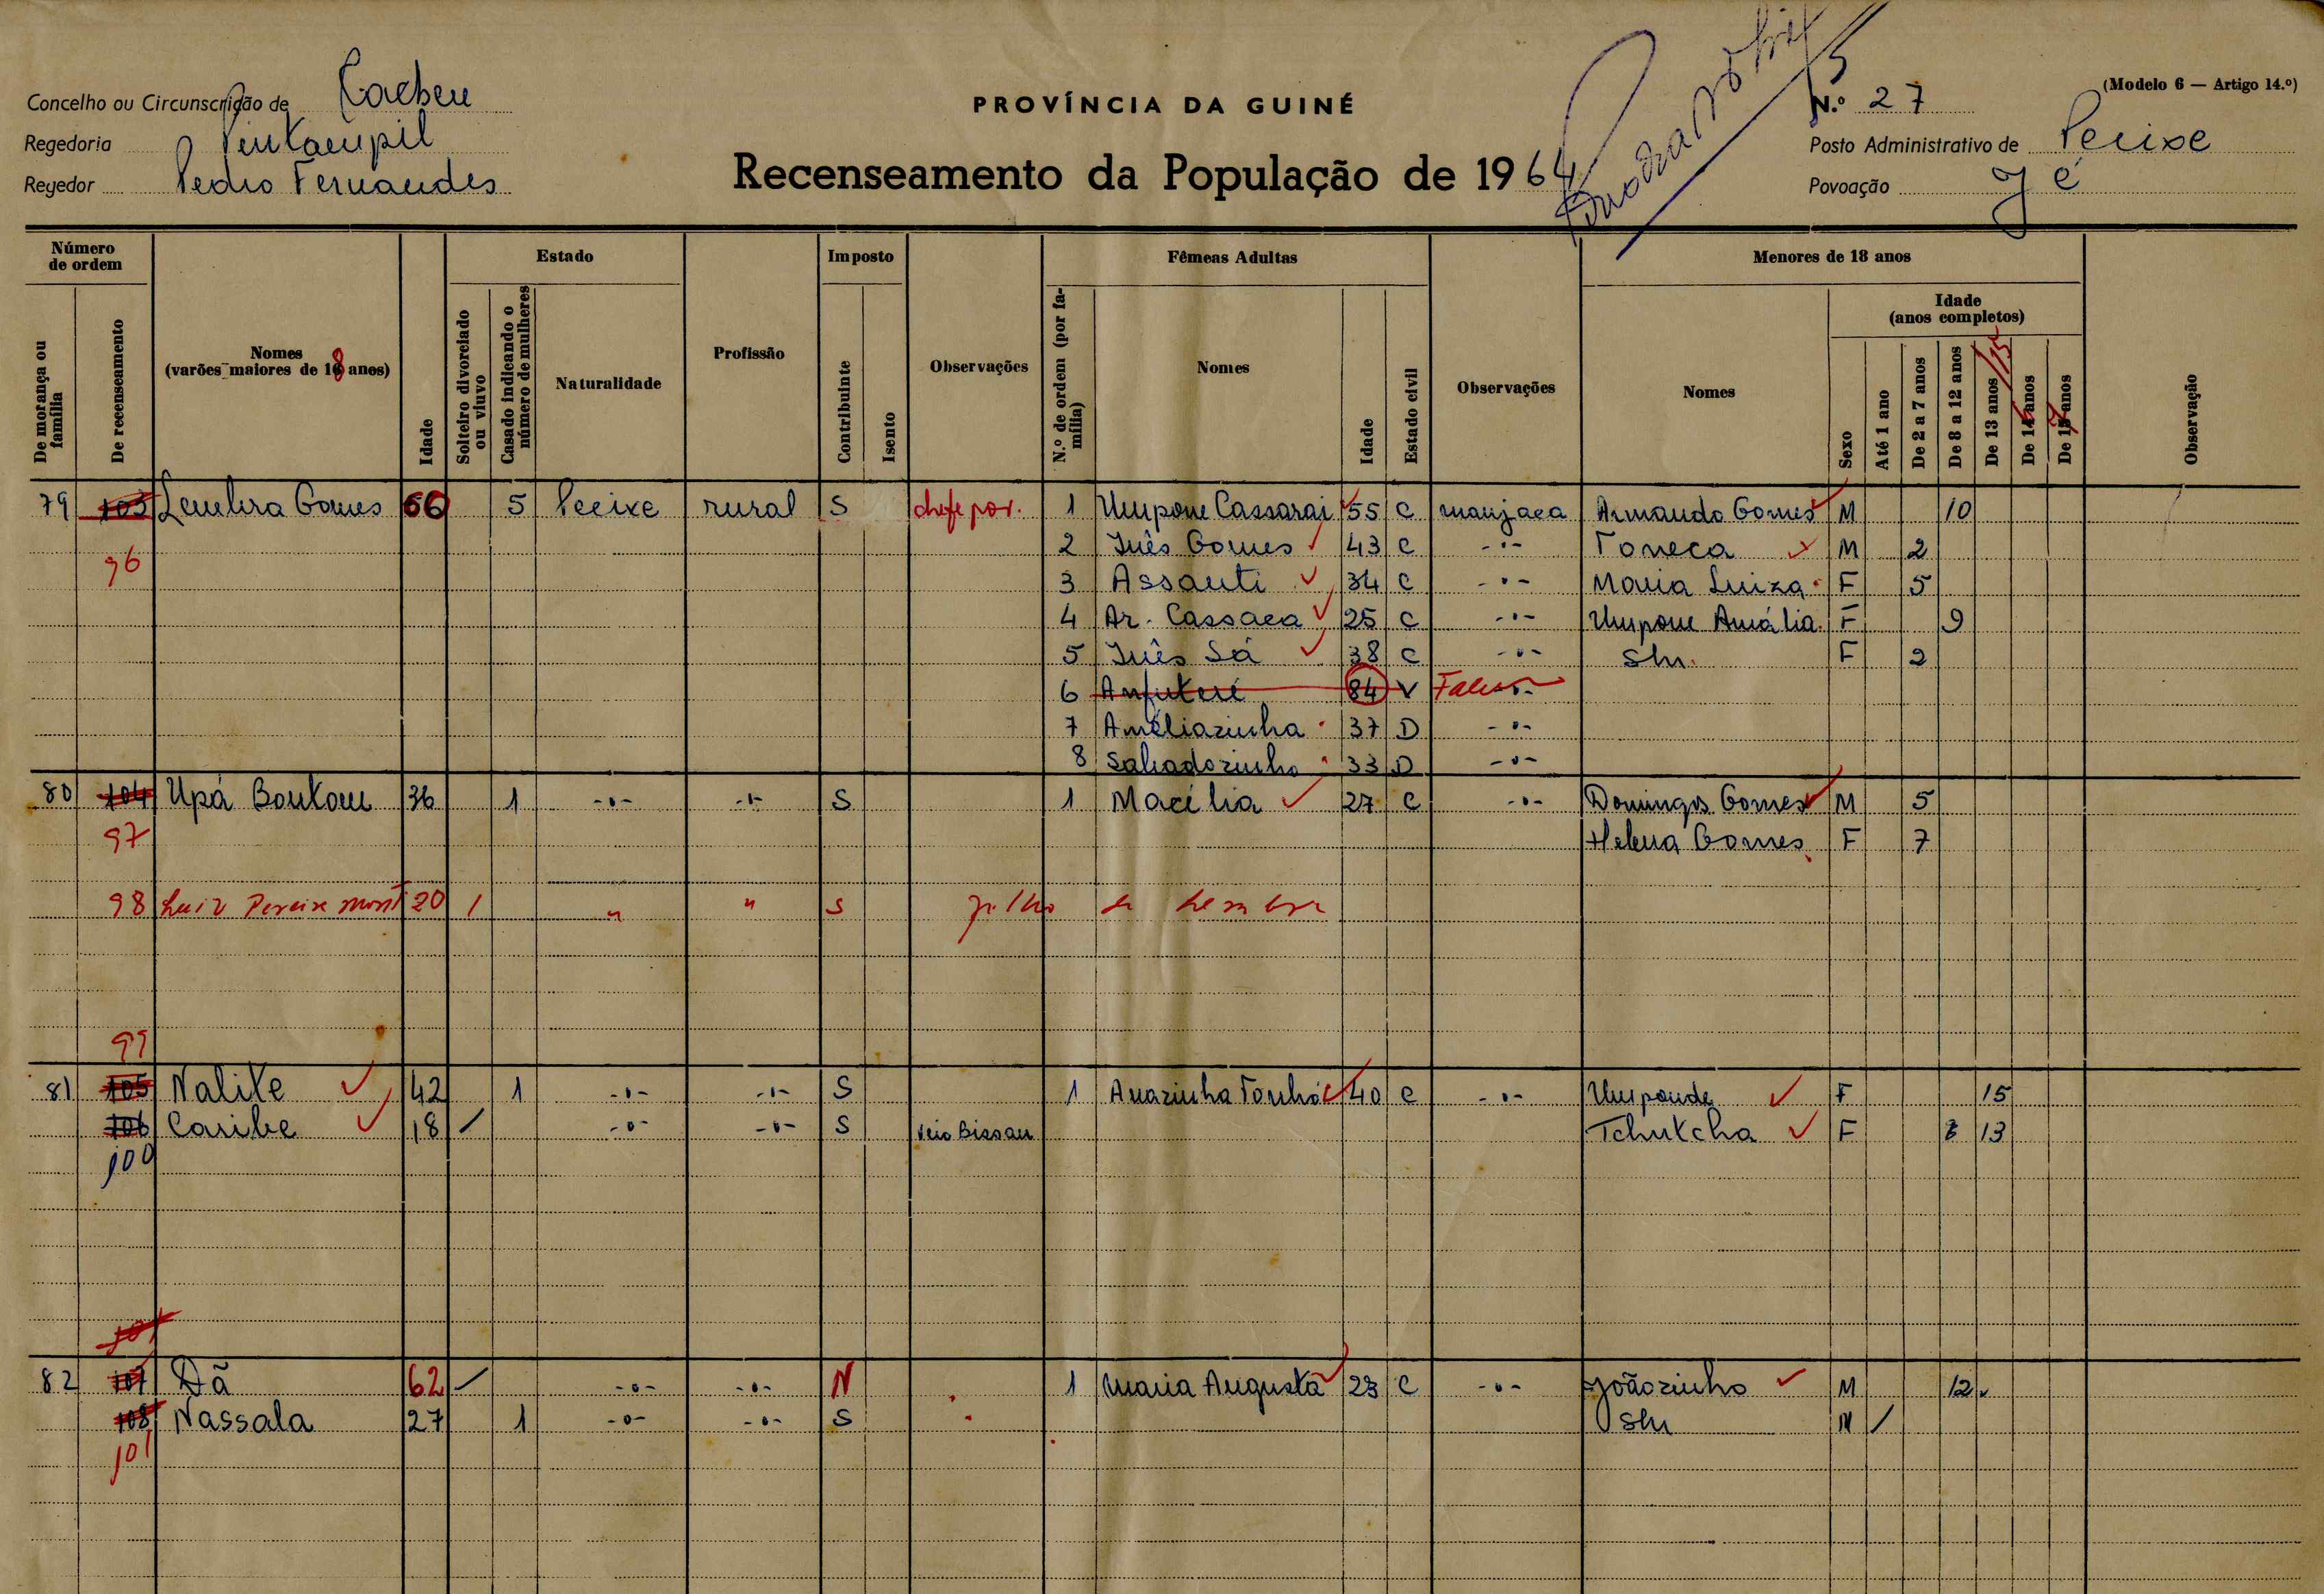 Concelho ou Circunscrição de Cacheu
PROVÍNCIA DA GUINÉ
N.º 27
(Modelo 6 — Artigo 14.º)
Regedoria
Posto Administrativo de Pecixe
Regedor Pedro Fernandes
Recenseamento da População de 1964
Povoação Jé
Número de ordem
De morança ou família
De recenseamento
Nomes
(varões maiores de 18 anos)
Idade
Estado
Solteiro divorciado ou viuvo
Casado indicando o número de mulheres
Naturalidade
Profissão
Imposto
Contribuinte
Isento
Observações
Fêmeas Adultas
N.º de ordem (por família)
Nomes
Idade
Estado civil
Observações
Menores de 18 anos
Nomes
Sexo
Idade
(anos completos)
Até 1 ano
De 2 a 7 anos
De 8 a 12 anos
De 13 anos /15
De 16 anos
De 17 anos
Observação
79 103 Lembra Gomes 66 5 Pecixe rural S chefe pov. 1 Umpone Cassarai 55 C manjaca Armando Gomes M 10
96 2 Inês Gomes 43 C -"- Toneca M 2
3 Assanti 34 C -"- Maria Luiza F 5
4 Ar. Cassaca 25 C -"- Umpone Amália F 9
5 Inês Sá 38 C -"- S/n. F 2
6 84 V -"-
7 Améliazinha 37 D -"-
8 Salvadozinha 33 D -"-
80 104 Upá Bontom 36 1 -"- -"- S 1 Macília 27 C -"- Domingos Gomes M 5
97 Helena Gomes F 7
98 Luiz Pereira 20 / " " S filho de Lembra
99
81 105 Nalite 42 1 -"- -"- S 1 Anazinha Tonhó 40 C -"- Umponde F 15
106 Caribe 18 / -"- -"- S veio Bissau Tchutcha F 13
100
101
82 107 Dã 62 / -"- -"- N 1 Maria Augusta 23 C -"- Joãozinho M 12
108 Nassala 27 1 -"- -"- S S/n M /
101